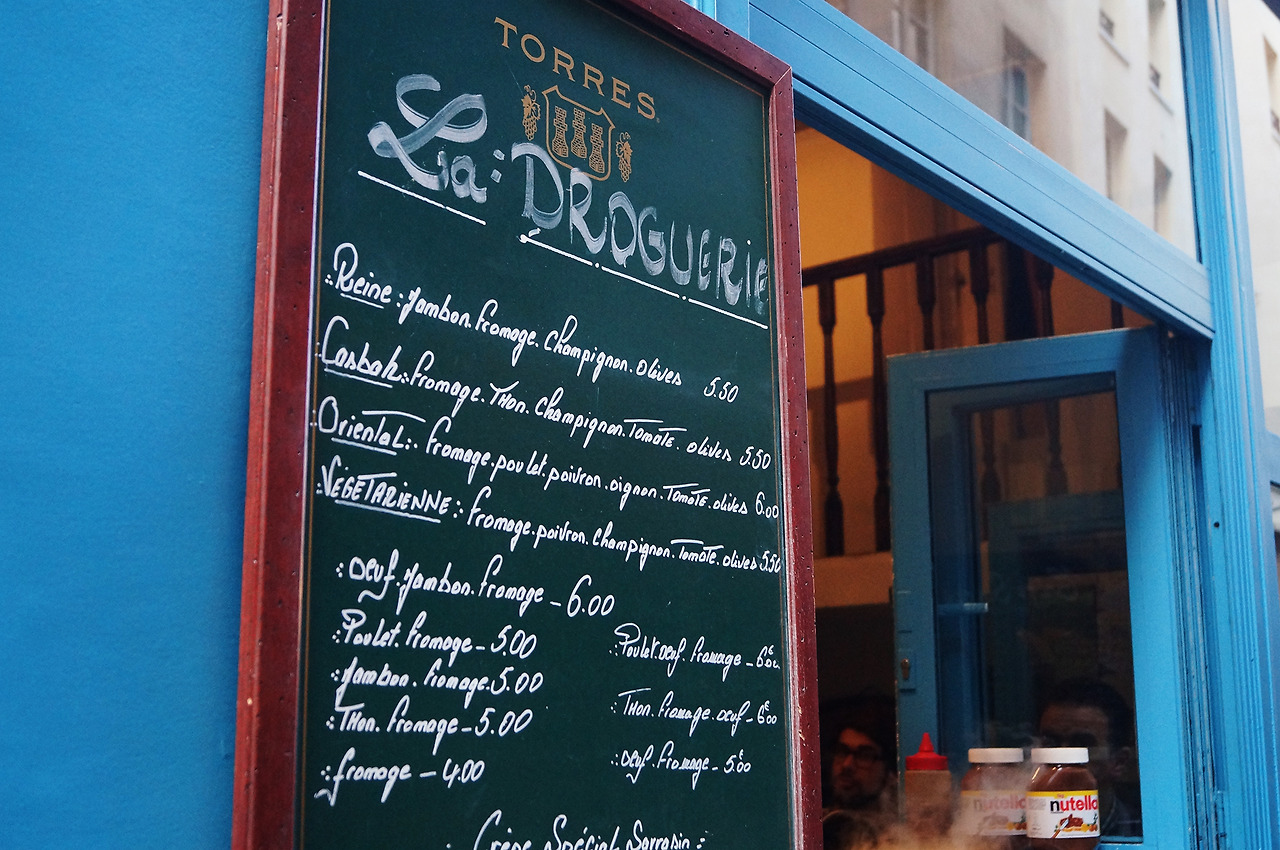 TORRES
La: DROGUERIE
Reine: Jambon. fromage. Champignon. olives 5.50
Casbah: fromage. Thon. Champignon. Tomate. olives 5.50
Oriental: fromage. poulet. poivron. oignon. Tomate. olives 6.00
VEGETARIENNE: fromage. poivron. Champignon. Tomate. olives 5.50
oeuf. Jambon. fromage - 6.00
Poulet. fromage - 5.00
Jambon. fromage. 5.00
Thon. fromage - 5.00
fromage - 4.00
Poulet. oeuf. fromage - 6€00
Thon. fromage. oeuf - 6€00
oeuf. fromage - 5€00
Crêpe Spécial Sarrasin:
nutella
nutella